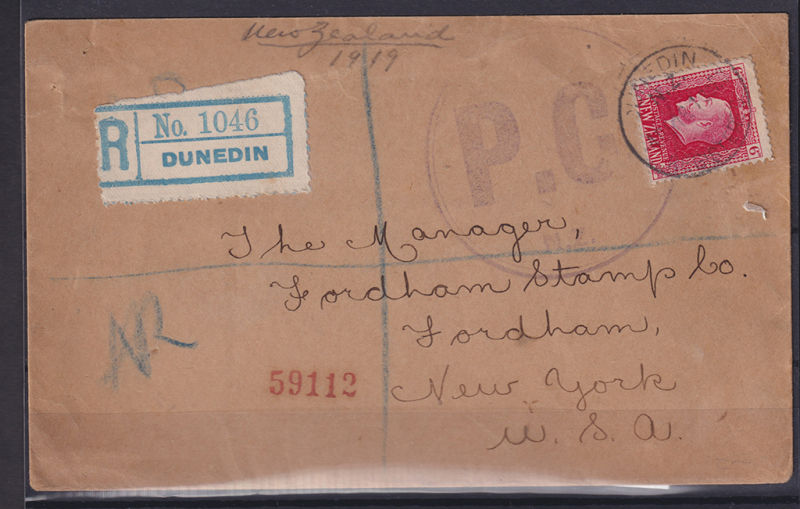 New Zealand
1919
R
No. 1046
DUNEDIN
P.C
EDIN
NEW ZEALAND
The Manager,
Fordham Stamp Co.
Fordham,
New York
U. S. A.
NR
59112